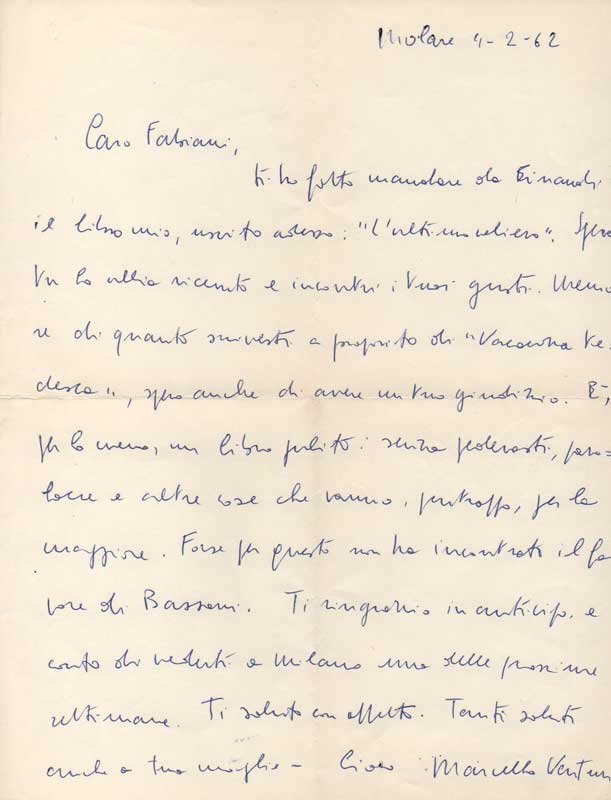 Molare 4-2-62
Caro Fabiani,
ti ho fatto mandare da Einaudi
il libro mio, uscito adesso: "L'ultimo veliero". Spero
tu lo abbia ricevuto e incontri i tuoi gusti. Memo
re di quanto scrivesti a proposito di "Vacanza te-
desca", spero anche di avere un tuo giudizio. È,
per lo meno, un libro pulito: senza pederasti, paro=
lacce e altre cose che vanno, purtroppo, per la
maggiore. Forse per questo non ha incontrato il fa
vore di Bassani. Ti ringrazio in anticipo e
conto di vederti a Milano una delle prossime
settimane. Ti saluto con affetto. Tanti saluti
anche a tua moglie - Ciao Marcello Venturi